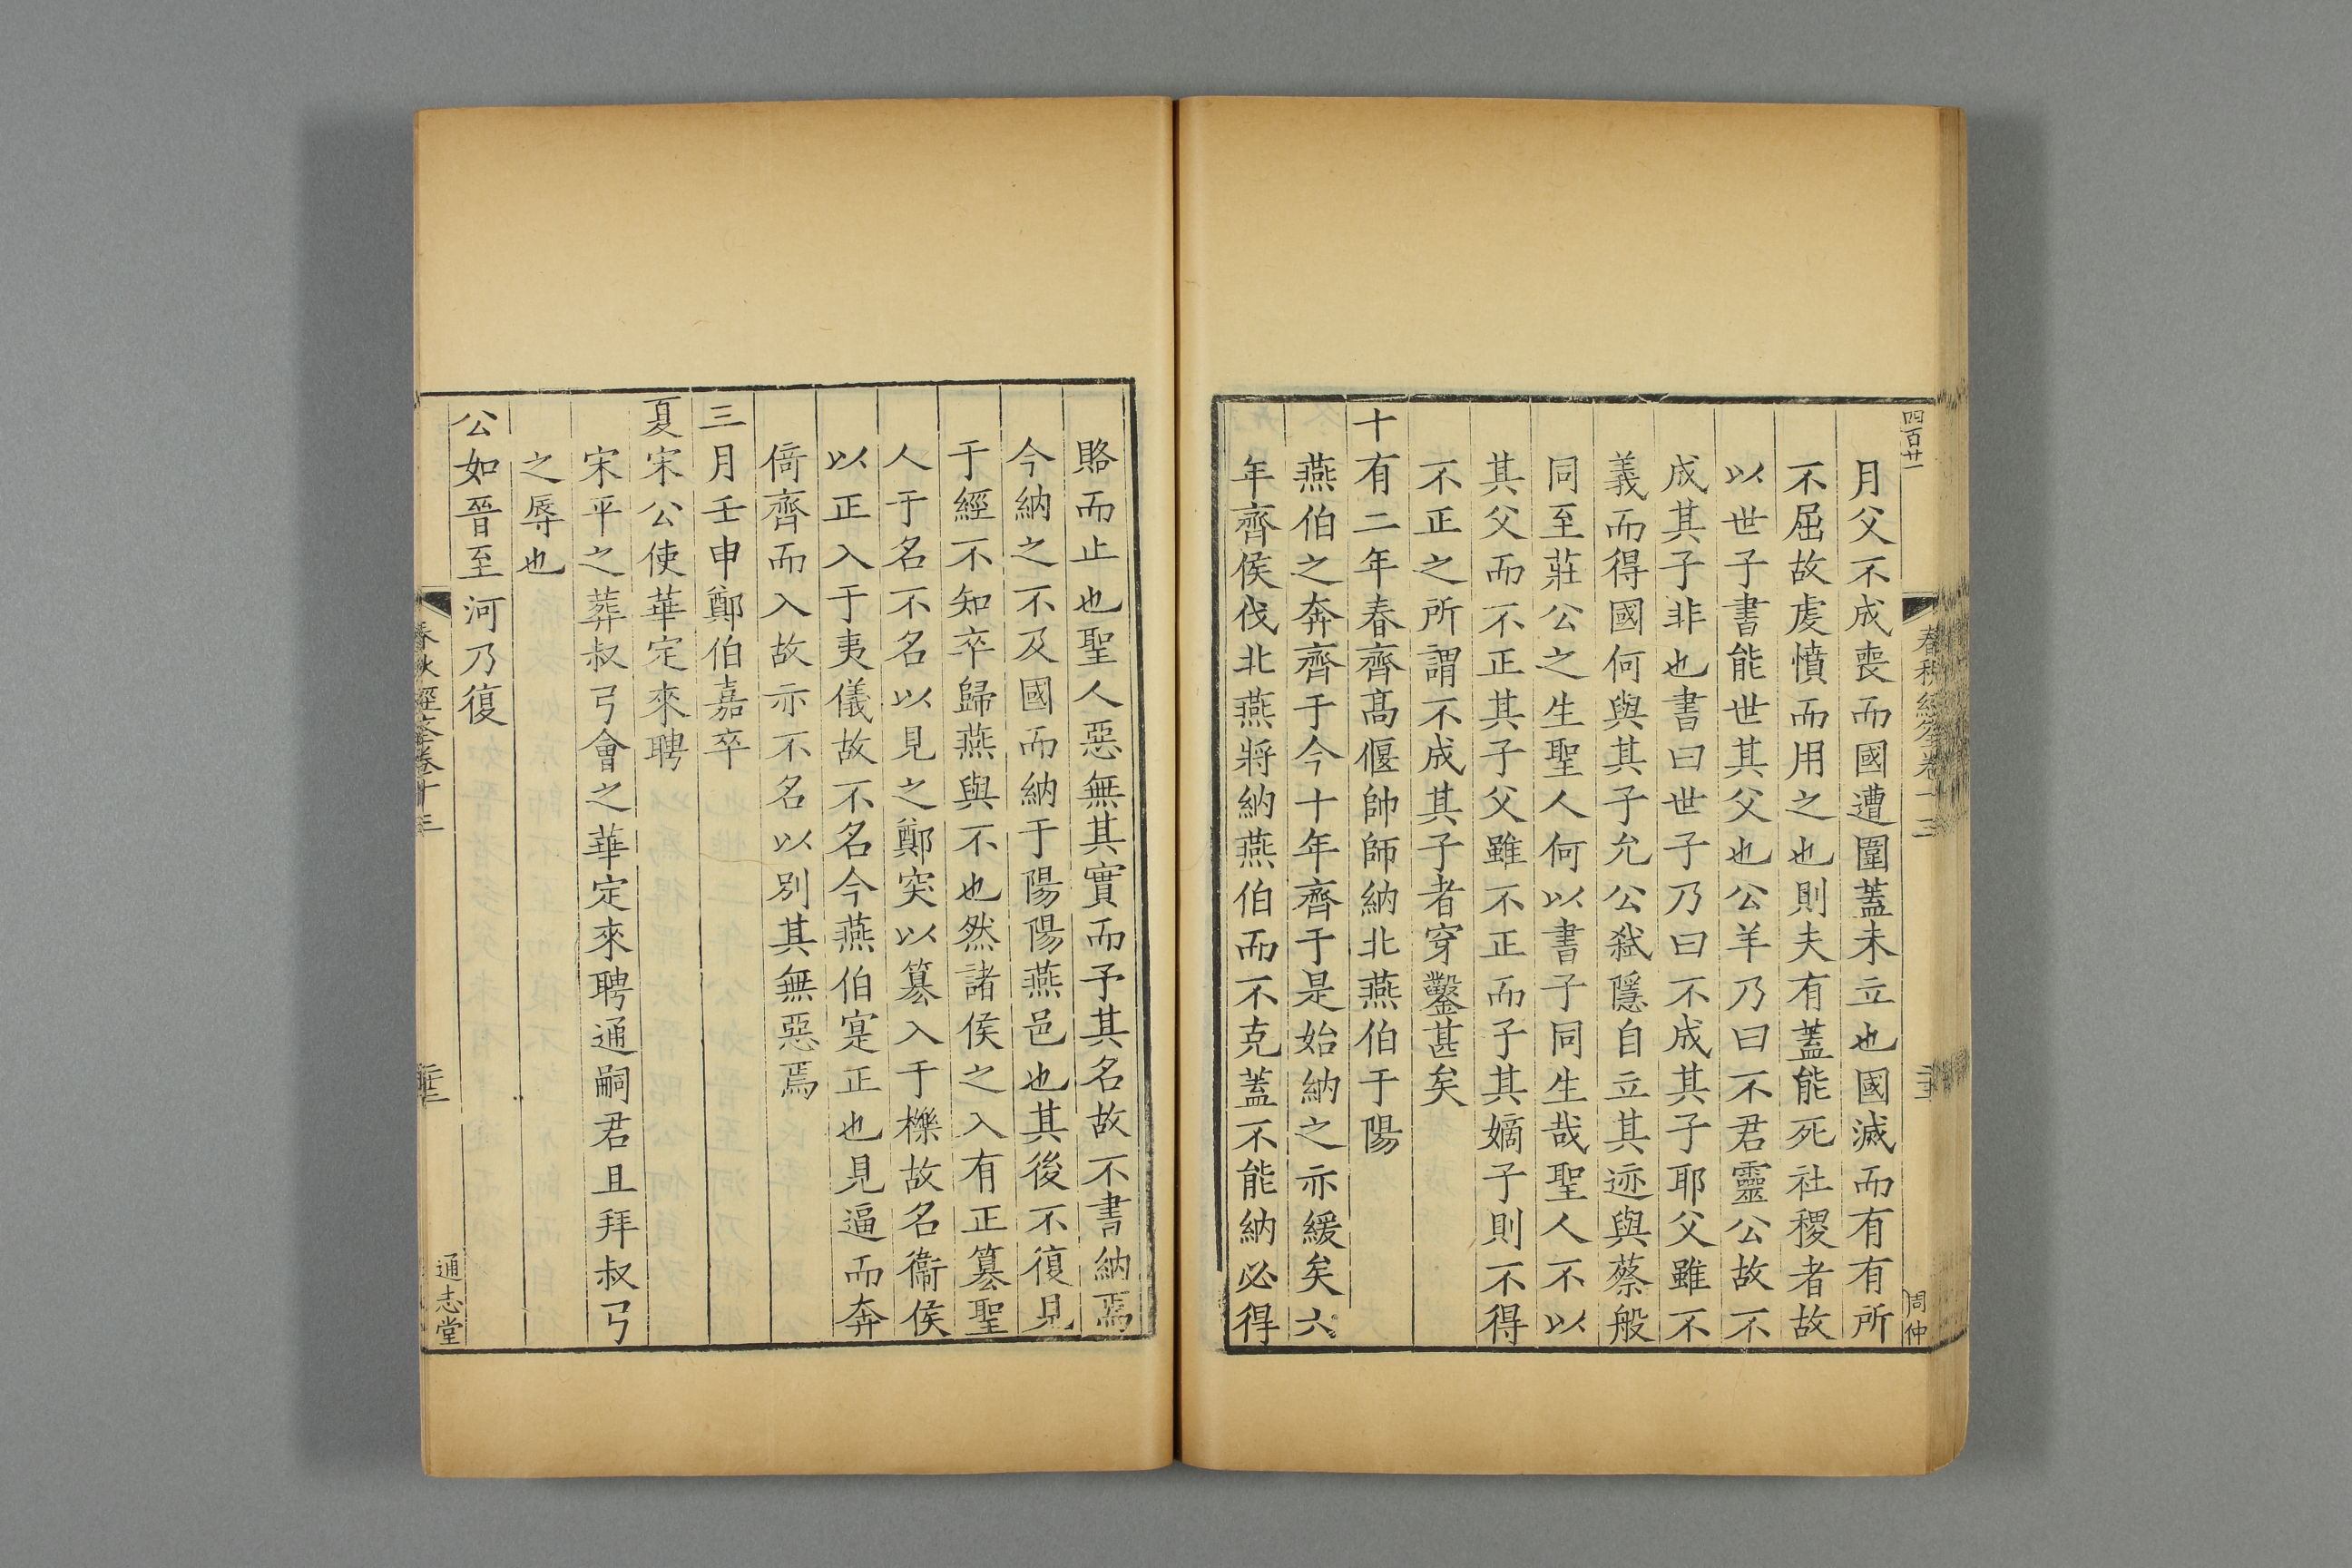 四百廿一
月父不成喪而國遭圍蓋未立也國滅而有有所
不屈故虔憤而用之也則夫有蓋能死社稷者故
以世子書能世其父也公羊乃曰不君靈公故不
成其子非也書曰世子乃曰不成其子耶父雖不
義而得國何與其子允公弑隱自立其迹與蔡般
同至莊公之生聖人何以書子同生哉聖人不以
其父而不正其子父雖不正而子其嫡子則不得
不正之所謂不成其子者穿鑿甚矣
十有二年春齊髙偃帥師納北燕伯于陽
燕伯之奔齊于今十年齊于是始納之亦緩矣六
年齊侯伐北燕將納燕伯而不克蓋不能納必得
周仲
賂而止也聖人惡無其實而予其名故不書納焉
今納之不及國而納于陽陽燕邑也其後不復見
于經不知卒歸燕與不也然諸侯之入有正篡聖
人于名不名以見之鄭突以篡入于櫟故名衞侯
以正入于夷儀故不名今燕伯寔正也見逼而奔
倚齊而入故亦不名以別其無惡焉
三月壬申鄭伯嘉卒
夏宋公使華定來聘
宋平之葬叔弓會之華定來聘通嗣君且拜叔弓
之辱也
公如晉至河乃復
通志堂